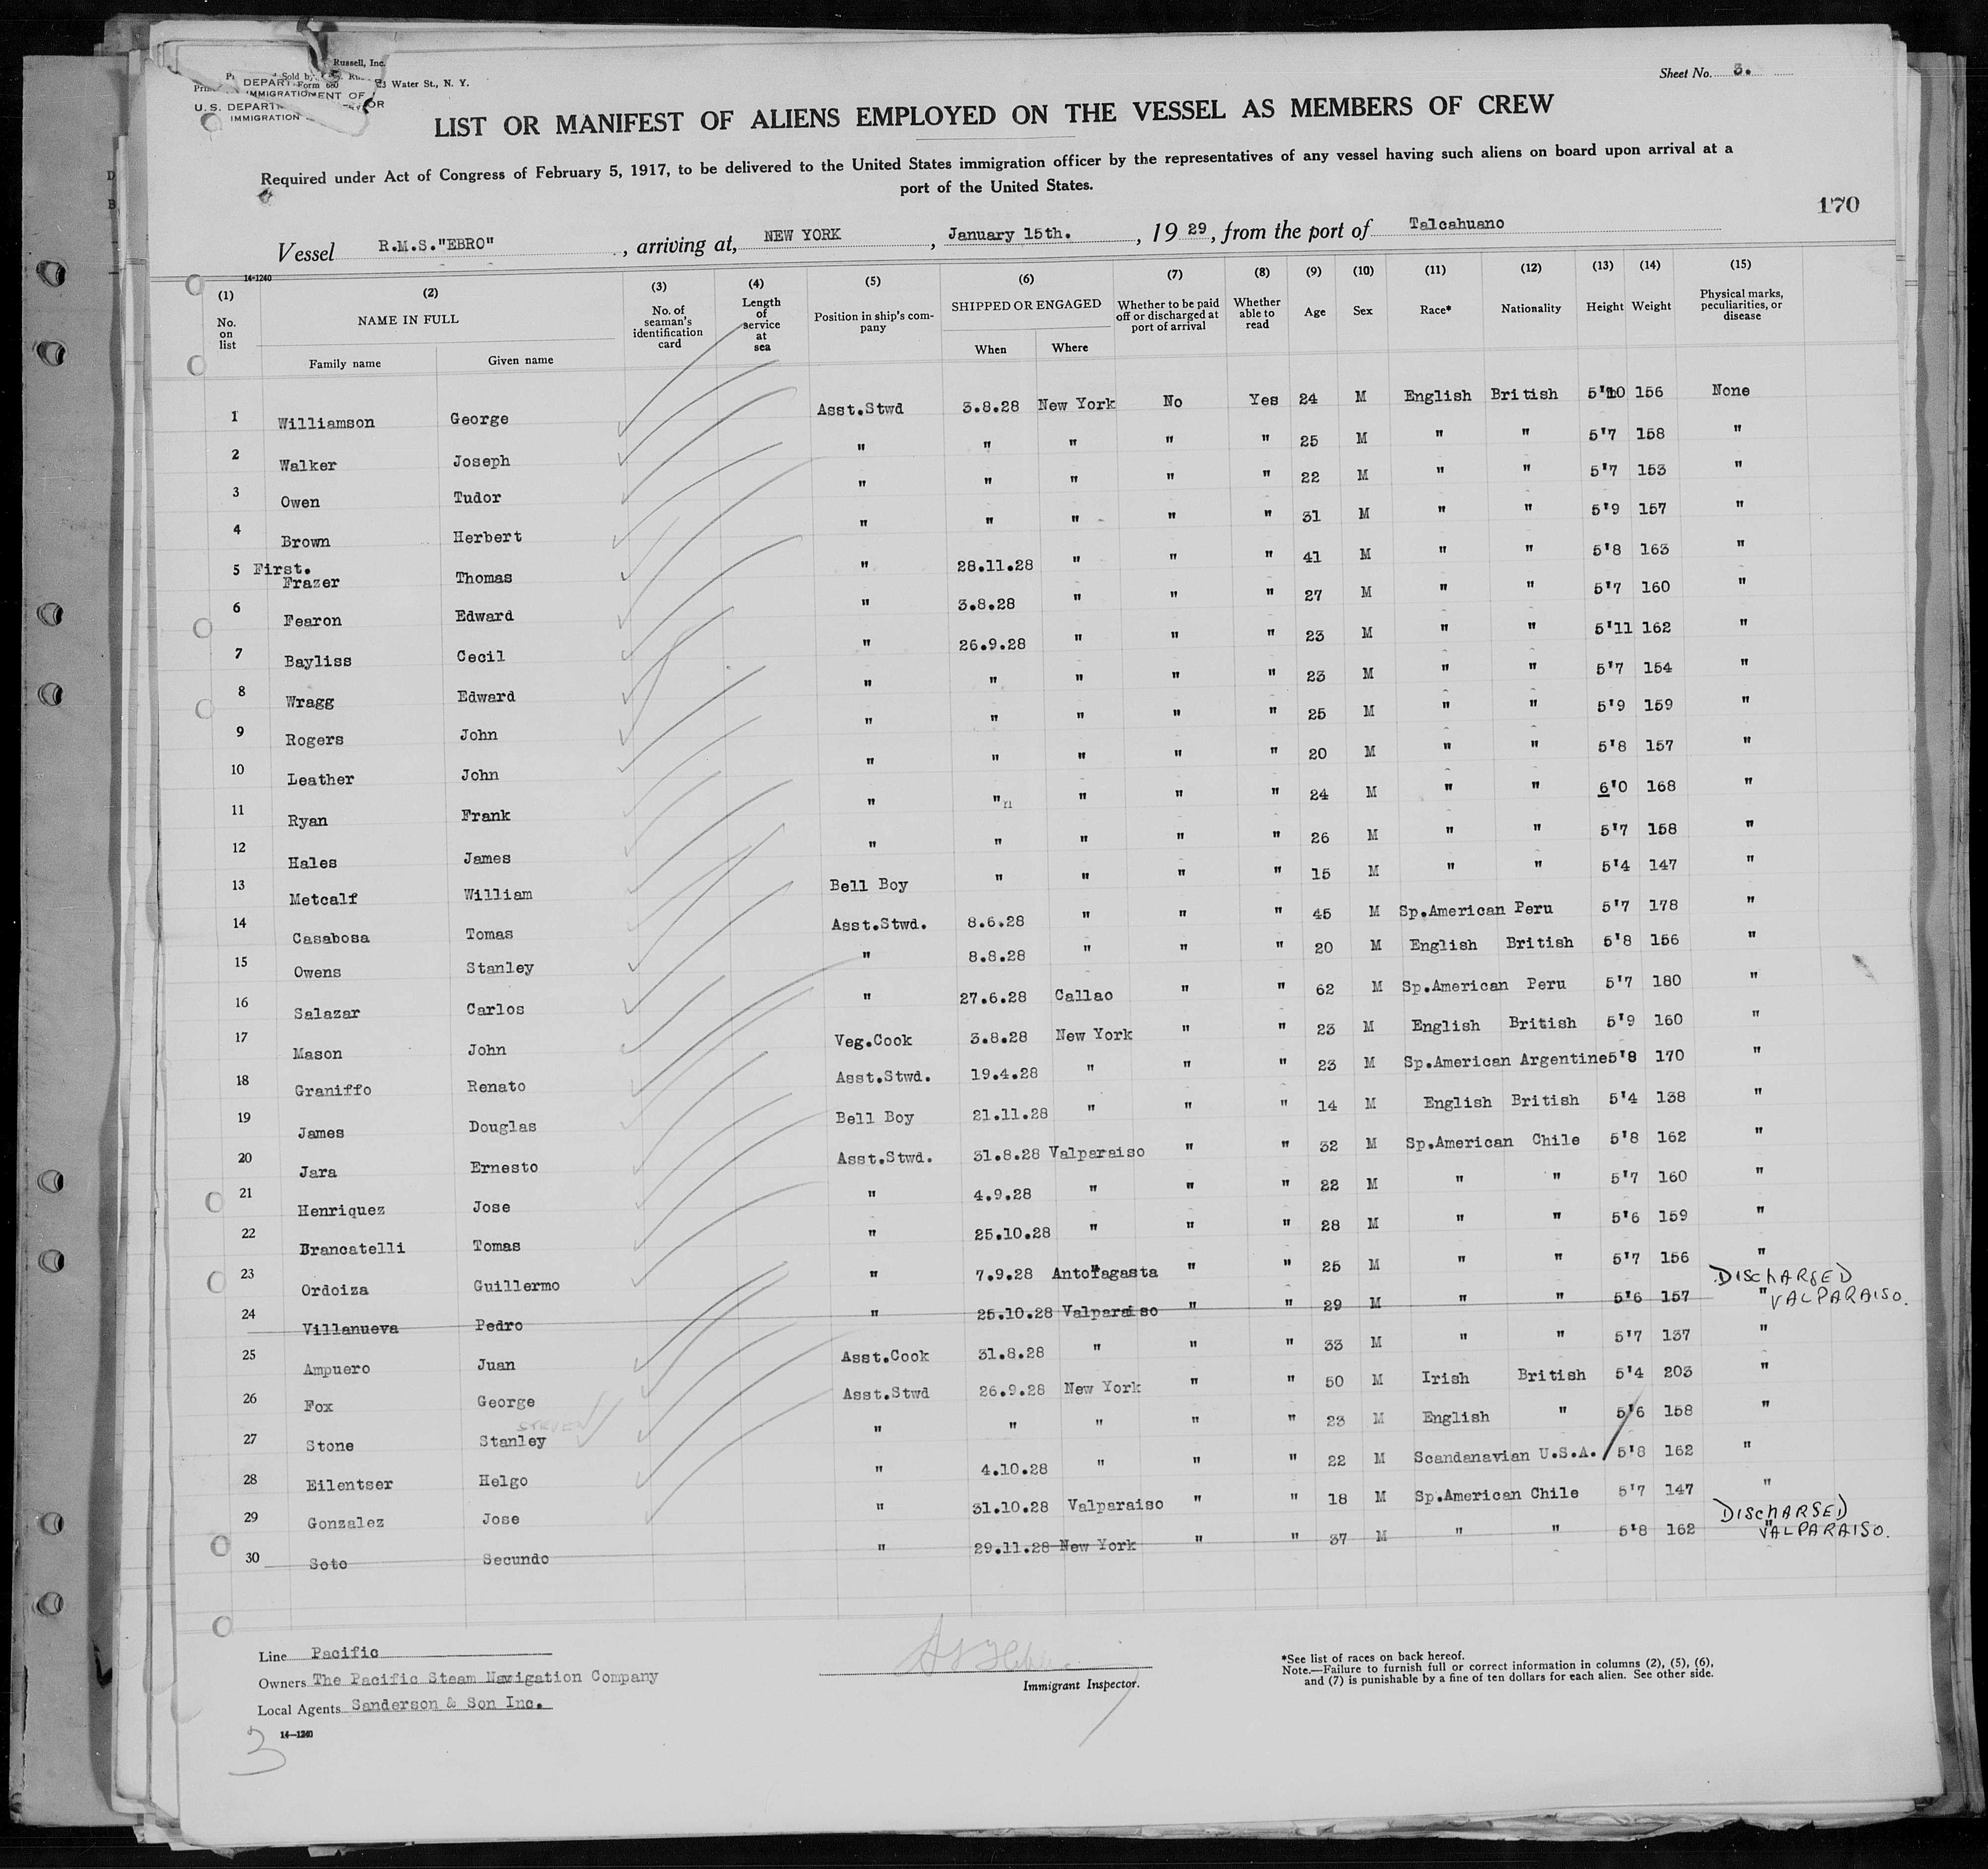 Russell, Inc.
Sold by
Form 680
Water St., N. Y.
DEPART
IMMIGRATION
MENT OF
U.S. DEPART
OR
IMMIGRATION
Sheet No. 3.
LIST OR MANIFEST OF ALIENS EMPLOYED ON THE VESSEL AS MEMBERS OF CREW
Required under Act of Congress of February 5, 1917, to be delivered to the United States immigration officer by the representatives of any vessel having such aliens on board upon arrival at a
port of the United States.
170
Vessel R.M.S."EBRO", arriving at, NEW YORK, January 15th., 19 29, from the port of Talcahuano
14-1240
(1) No. on list (2) NAME IN FULL Family name Given name (3) No. of seaman's identification card (4) Length of service at sea (5) Position in ship's company (6) SHIPPED OR ENGAGED When Where (7) Whether to be paid off or discharged at port of arrival (8) Whether able to read (9) Age (10) Sex (11) Race* (12) Nationality (13) Height (14) Weight (15) Physical marks, peculiarities, or disease
1 Williamson George Asst.Stwd 3.8.28 New York No Yes 24 M English British 5'10 156 None
2 Walker Joseph " " " " " 25 M " " 5'7 158 "
3 Owen Tudor " " " " " 22 M " " 5'7 153 "
4 Brown Herbert " " " " " 31 M " " 5'9 157 "
5 First. Frazer Thomas " 28.11.28 " " " 41 M " " 5'8 163 "
6 Fearon Edward " 3.8.28 " " " 27 M " " 5'7 160 "
7 Bayliss Cecil " 26.9.28 " " " 23 M " " 5'11 162 "
8 Wragg Edward " " " " " 23 M " " 5'7 154 "
9 Rogers John " " " " " 25 M " " 5'9 159 "
10 Leather John " " " " " 20 M " " 5'8 157 "
11 Ryan Frank " " " " " 24 M " " 6'0 168 "
12 Hales James " " " " " 26 M " " 5'7 158 "
13 Metcalf William Bell Boy " " " " 15 M " " 5'4 147 "
14 Casabosa Tomas Asst.Stwd. 8.6.28 " " " 45 M Sp.American Peru 5'7 178 "
15 Owens Stanley " 8.8.28 " " " 20 M English British 5'8 156 "
16 Salazar Carlos " 27.6.28 Callao " " 62 M Sp.American Peru 5'7 180 "
17 Mason John Veg.Cook 3.8.28 New York " " 23 M English British 5'9 160 "
18 Graniffo Renato Asst.Stwd. 19.4.28 " " " 23 M Sp.American Argentine 5'8 170 "
19 James Douglas Bell Boy 21.11.28 " " " 14 M English British 5'4 138 "
20 Jara Ernesto Asst.Stwd. 31.8.28 Valparaiso " " 32 M Sp.American Chile 5'8 162 "
21 Henriquez Jose " 4.9.28 " " " 22 M " " 5'7 160 "
22 Brancatelli Tomas " 25.10.28 " " " 28 M " " 5'6 159 "
23 Ordoiza Guillermo " 7.9.28 Antofagasta " " 25 M " " 5'7 156 "
24 Villanueva Pedro " 25.10.28 Valparaiso " " 29 M " " 5'6 157 " DISCHARGED VALPARAISO.
25 Ampuero Juan Asst.Cook 31.8.28 " " " 33 M " " 5'7 137 "
26 Fox George Asst.Stwd 26.9.28 New York " " 50 M Irish British 5'4 203 "
27 Stone Stanley " " " " " 23 M English " 5'6 158 "
28 Eilentser Helgo " 4.10.28 " " " 22 M Scandanavian U.S.A. 5'8 162 "
29 Gonzalez Jose " 31.10.28 Valparaiso " " 18 M Sp.American Chile 5'7 147 "
30 Soto Secundo " 29.11.28 New York " " 37 M " " 5'8 162 " DISCHARGED VALPARAISO.
Line Pacific
Owners The Pacific Steam Navigation Company
Local Agents Sanderson & Son Inc.
14-1240
3
Immigrant Inspector.
*See list of races on back hereof.
Note.—Failure to furnish full or correct information in columns (2), (5), (6),
and (7) is punishable by a fine of ten dollars for each alien. See other side.